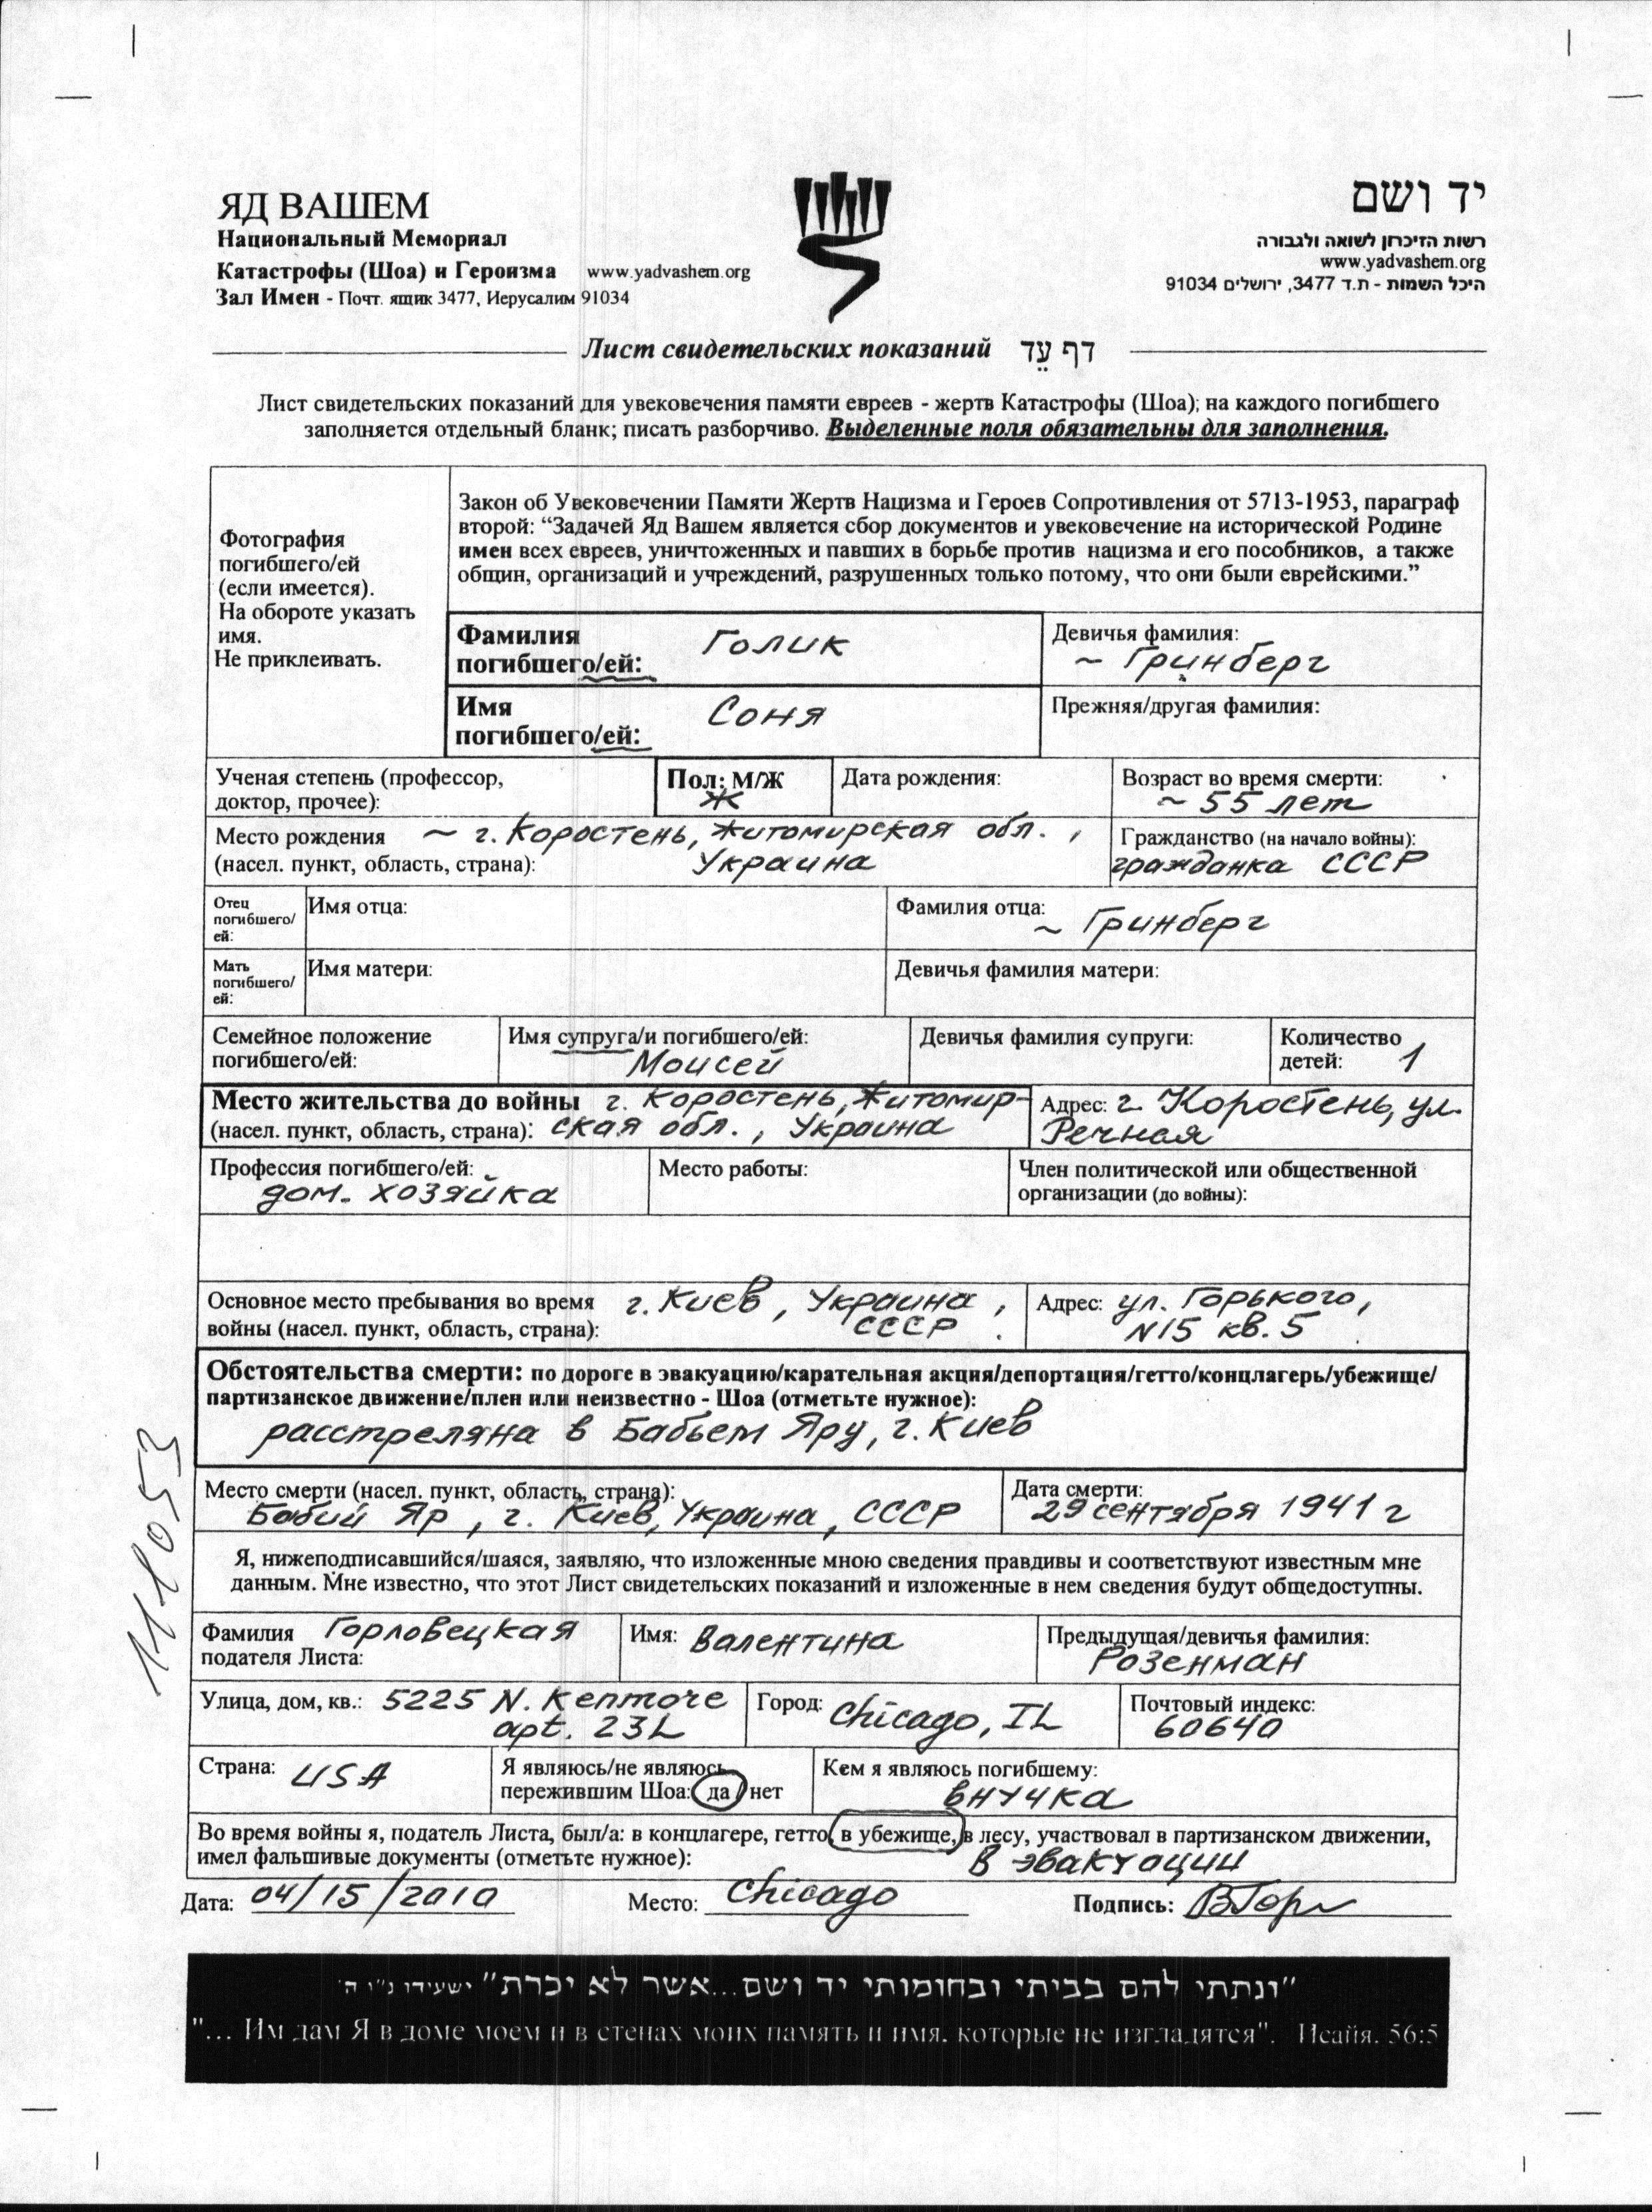 ЯД ВАШЕМ
Национальный Мемориал
Катастрофы (Шоа) и Героизма www.yadvashem.org
Зал Имен - Почт. ящик 3477, Иерусалим 91034
יד ושם
רשות הזיכרון לשואה ולגבורה
www.yadvashem.org
היכל השמות - ת.ד 3477, ירושלים 91034
Лист свидетельских показаний דף עֵד
Лист свидетельских показаний для увековечения памяти евреев - жертв Катастрофы (Шоа); на каждого погибшего
заполняется отдельный бланк; писать разборчиво. Выделенные поля обязательны для заполнения.
Фотография
погибшего/ей
(если имеется).
На обороте указать
имя.
Не приклеивать.
Закон об Увековечении Памяти Жертв Нацизма и Героев Сопротивления от 5713-1953, параграф
второй: “Задачей Яд Вашем является сбор документов и увековечение на исторической Родине
имен всех евреев, уничтоженных и павших в борьбе против нацизма и его пособников, а также
общин, организаций и учреждений, разрушенных только потому, что они были еврейскими.”
Фамилия
погибшего/ей: Голик
Девичья фамилия:
~ Гринберг
Имя
погибшего/ей: Соня
Прежняя/другая фамилия:
Ученая степень (профессор,
доктор, прочее):
Пол: М/Ж
Ж
Дата рождения:
Возраст во время смерти:
~ 55 лет
Место рождения ~ г. Коростень, Житомирская обл.,
(насел. пункт, область, страна): Украина
Гражданство (на начало войны):
гражданка СССР
Отец
погибшего/
ей:
Имя отца:
Фамилия отца:
~ Гринберг
Мать
погибшего/
ей:
Имя матери:
Девичья фамилия матери:
Семейное положение
погибшего/ей:
Имя супруга/и погибшего/ей:
Моисей
Девичья фамилия супруги:
Количество
детей: 1
Место жительства до войны г. Коростень, Житомир-
(насел. пункт, область, страна): ская обл., Украина
Адрес: г. Коростень, ул.
Речная
Профессия погибшего/ей:
дом. хозяйка
Место работы:
Член политической или общественной
организации (до войны):
Основное место пребывания во время г. Киев, Украина,
войны (насел. пункт, область, страна): СССР
Адрес: ул. Горького,
N15 кв. 5
Обстоятельства смерти: по дороге в эвакуацию/карательная акция/депортация/гетто/концлагерь/убежище/
партизанское движение/плен или неизвестно - Шоа (отметьте нужное):
расстреляна в Бабьем Яру, г. Киев
Место смерти (насел. пункт, область, страна):
Бабий Яр, г. Киев, Украина, СССР
Дата смерти:
29 сентября 1941 г
Я, нижеподписавшийся/шаяся, заявляю, что изложенные мною сведения правдивы и соответствуют известным мне
данным. Мне известно, что этот Лист свидетельских показаний и изложенные в нем сведения будут общедоступны.
Фамилия Горловецкая
подателя Листа:
Имя: Валентина
Предыдущая/девичья фамилия:
Розенман
Улица, дом, кв.: 5225 N. Kenmore
apt. 23L
Город: Chicago, IL
Почтовый индекс:
60640
Страна: USA
Я являюсь/не являюсь
пережившим Шоа: да / нет
Кем я являюсь погибшему:
внучка
Во время войны я, податель Листа, был/а: в концлагере, гетто, в убежище, в лесу, участвовал в партизанском движении,
имел фальшивые документы (отметьте нужное): В эвакуации
Дата: 04/15/2010 Место: Chicago Подпись: ВГор
"ונתתי להם בביתי ובחומותי יד ושם...אשר לא יכרת" ישעיהו נ"ו ה'
"... Им дам Я в доме моем и в стенах моих память и имя. которые не изгладятся". Исайя. 56:5